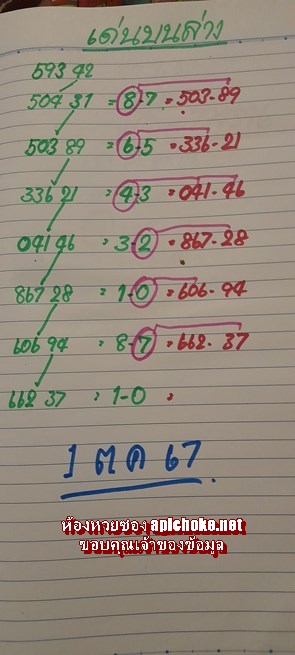 เด่นบนล่าง
593 42
504 31 = 8-7 = 503-89
503 89 = 6-5 = 336-21
336 21 = 4-3 = 041-46
041 46 = 3-2 = 867-28
867 28 = 1-0 = 606-94
606 94 = 8-7 = 662-37
662 37 = 1-0 =
1 ตค 67
ห้องหวยซอง apichoke.net
ขอบคุณเจ้าของข้อมูล